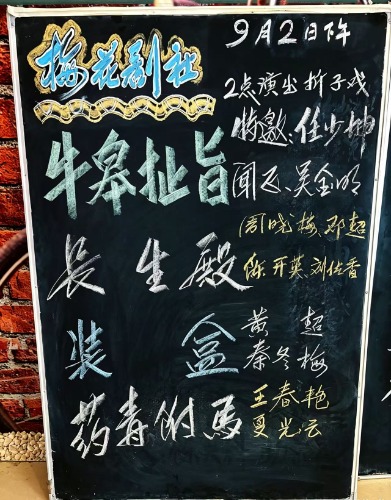 梅花剧社
9月2日下午
2点演出折子戏
特邀:任少坤
牛皋扯旨
闻天、吴金明
周晓梅、邓超
长生殿
陈开英、刘佐香
装盒
黄超
秦冬梅
药毒附馬
王春艳
夏光云